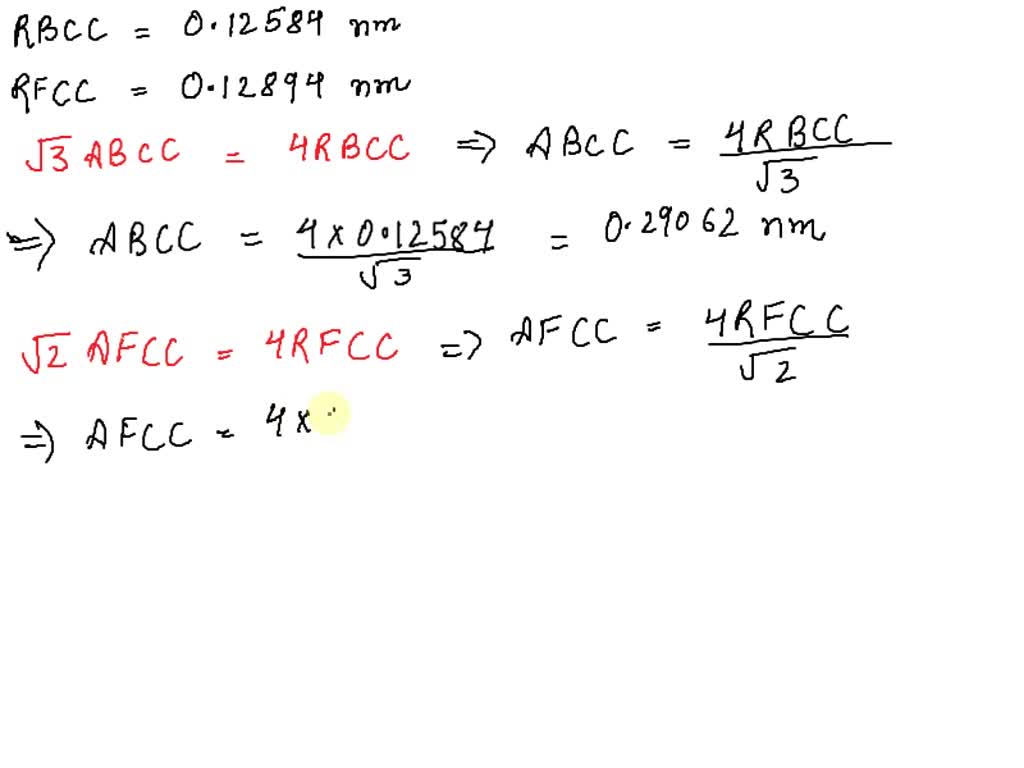 RBCC = 0.12584 nm
RFCC = 0.12894 nm
√3 ABCC = 4RBCC ⇒ ABCC = 4RBCC/√3
⇒ ABCC = 4×0.12584/√3 = 0.29062 nm
√2 AFCC = 4RFCC ⇒ AFCC = 4RFCC/√2
⇒ AFCC = 4×